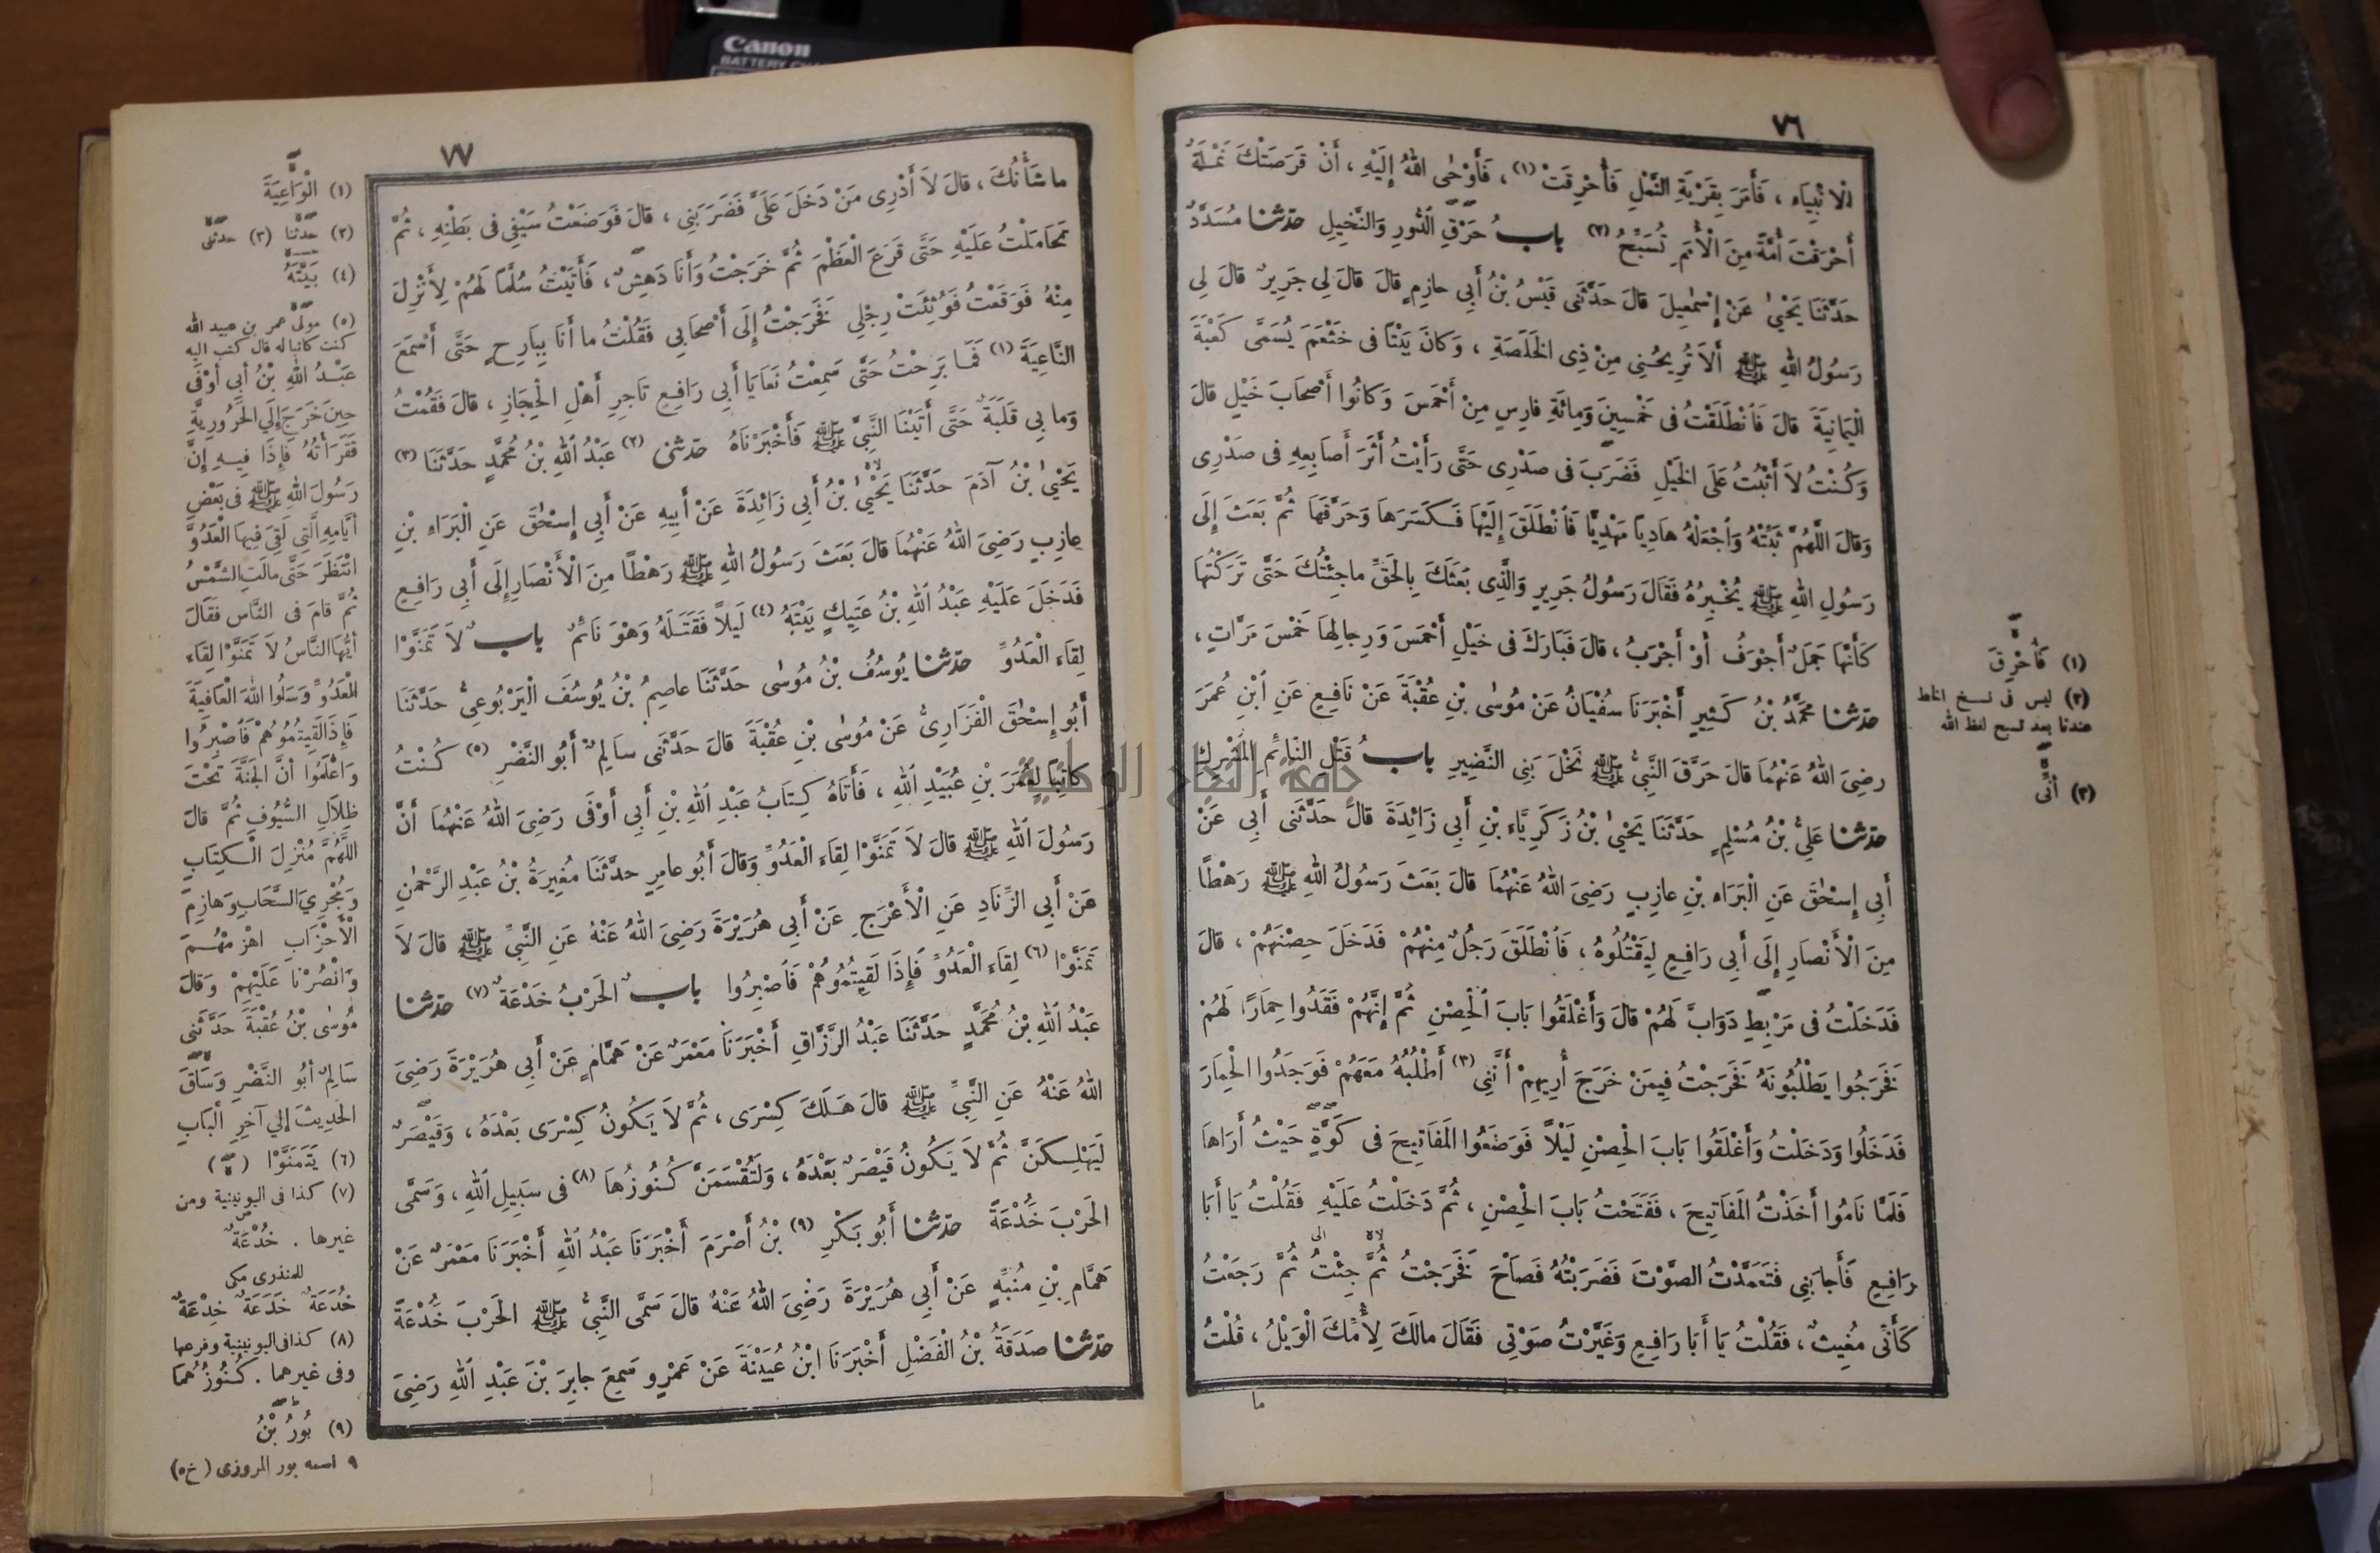 Canon
BATTERY CHA
٧٦
الْأَنْبِيَاءِ ، فَأَمَرَ بِقَرْيَةِ النَّمْلِ فَأُحْرِقَتْ (١) ، فَأَوْحَى اللهُ إِلَيْهِ ، أَنْ قَرَصَتْكَ نَمْلَةٌ
أَحْرَقْتَ أُمَّةً مِنَ الْأُمَمِ تُسَبِّحُ (٢) بابُ حَرْقِ الدُّورِ وَالنَّخِيلِ حدثنا مُسَدَّدٌ
حَدَّثَنَا يَحْيىٰ عَنْ إِسْمٰعِيلَ قالَ حَدَّثَنِي قَيْسُ بْنُ أَبِي حازِمٍ قالَ قالَ لِي جَرِيرٌ قالَ لِي
رَسُولُ اللهِ ﷺ أَلَا تُرِيحُنِي مِنْ ذِي الخَلَصَةِ ، وَكانَ بَيْتًا فى خَثْعَمَ يُسَمَّى كَعْبَةَ
الْيَمَانِيَةَ قالَ فَانْطَلَقْتُ فى خَمْسِينَ وَمِائَةِ فارِسٍ مِنْ أَحْمَسَ وَكانُوا أَصْحَابَ خَيْلٍ قالَ
وَكُنْتُ لَا أَثْبُتُ عَلَى الخَيْلِ فَضَرَبَ فى صَدْرِى حَتَّى رَأَيْتُ أَثَرَ أَصَابِعِهِ فى صَدْرِى
وَقالَ اللَّهُمَّ ثَبِّتْهُ وَاجْعَلْهُ هَادِيًا مَهْدِيًّا فَانْطَلَقَ إِلَيْهَا فَكَسَرَهَا وَحَرَّقَهَا ثُمَّ بَعَثَ إِلَى
رَسُولِ اللهِ ﷺ يُخْبِرُهُ فَقَالَ رَسُولُ جَرِيرٍ وَالَّذِى بَعَثَكَ بِالحَقِّ ماجِئْتُكَ حَتَّى تَرَكْتُهَا
كَأَنَّهَا جَمَلٌ أَجْوَفُ أَوْ أَجْرَبُ ، قالَ فَبَارَكَ فى خَيْلِ أَحْمَسَ وَرِجالِهَا خَمْسَ مَرَّاتٍ ،
حدثنا مُحَمَّدُ بْنُ كَثِيرٍ أَخْبَرَنَا سُفْيَانُ عَنْ مُوسٰى بْنِ عُقْبَةَ عَنْ نَافِعٍ عَنِ ابْنِ عُمَرَ
رضِىَ اللهُ عَنْهُمَا قالَ حَرَّقَ النَّبِىُّ ﷺ نَخْلَ بَنِى النَّضِيرِ بابُ قَتْلِ النَّائِمِ الْمُشْرِكِ
حدثنا عَلِىُّ بْنُ مُسْلِمٍ حَدَّثَنَا يَحْيىٰ بْنُ زَكَرِيَّاءَ بْنِ أَبِى زَائِدَةَ قالَ حَدَّثَنِى أَبِى عَنْ
أَبِى إِسْحٰقَ عَنِ الْبَرَاءِ بْنِ عازِبٍ رَضِىَ اللهُ عَنْهُمَا قالَ بَعَثَ رَسُولُ اللهِ ﷺ رَهْطًا
مِنَ الْأَنْصَارِ إِلَى أَبِى رَافِعٍ لِيَقْتُلُوهُ ، فَانْطَلَقَ رَجُلٌ مِنْهُمْ فَدَخَلَ حِصْنَهُمْ ، قالَ
فَدَخَلْتُ فى مَرْبِطِ دَوَابَّ لَهُمْ قالَ وَأَغْلَقُوا بَابَ الْحِصْنِ ثُمَّ إِنَّهُمْ فَقَدُوا حِمَارًا لَهُمْ
فَخَرَجُوا يَطْلُبُونَهُ فَخَرَجْتُ فِيمَنْ خَرَجَ أُرِيهِمْ أَنَّنِي (٣) أَطْلُبُهُ مَعَهُمْ فَوَجَدُوا الْحِمَارَ
فَدَخَلُوا وَدَخَلْتُ وَأَغْلَقُوا بَابَ الْحِصْنِ لَيْلًا فَوَضَعُوا المَفَاتِيحَ فى كَوَّةٍ حَيْثُ أَرَاهَا
فَلَمَّا نَامُوا أَخَذْتُ المَفَاتِيحَ ، فَفَتَحْتُ بَابَ الْحِصْنِ ، ثُمَّ دَخَلْتُ عَلَيْهِ فَقُلْتُ يَا أَبَا
رَافِعٍ فَأَجابَنِى فَتَعَمَّدْتُ الصَّوْتَ فَضَرَبْتُهُ فَصَاحَ فَخَرَجْتُ ثُمَّ جِئْتُ ثُمَّ رَجَعْتُ
كَأَنِّى مُغِيثٌ ، فَقُلْتُ يَا أَبَا رَافِعٍ وَغَيَّرْتُ صَوْتِى فَقَالَ مالَكَ لِأُمِّكَ الْوَيْلُ ، قُلْتُ
ما
(١) فَأُحْرِقَ
(٢) ليس فى نسخ الخط
عندنا بعد تسبح لفظ الله
(٣) أَنِّى
٧٧
ما شَأْنُكَ ، قالَ لَا أَدْرِى مَنْ دَخَلَ عَلَىَّ فَضَرَبَنِى ، قالَ فَوَضَعْتُ سَيْفِى فى بَطْنِهِ ، ثُمَّ
تَحَامَلْتُ عَلَيْهِ حَتَّى قَرَعَ الْعَظْمَ ثُمَّ خَرَجْتُ وَأَنَا دَهِشٌ ، فَأَتَيْتُ سُلَّمًا لَهُمْ لِأَنْزِلَ
مِنْهُ فَوَقَعْتُ فَوُثِئَتْ رِجْلِى فَخَرَجْتُ إِلَى أَصْحَابِى فَقُلْتُ ما أَنَا بِبَارِحٍ حَتَّى أَسْمَعَ
النَّاعِيَةَ (١) فَمَا بَرِحْتُ حَتَّى سَمِعْتُ نَعَايَا أَبِى رَافِعٍ تَاجِرِ أَهْلِ الْحِجَازِ ، قالَ فَقُمْتُ
وَما بِى قَلَبَةٌ حَتَّى أَتَيْنَا النَّبِىَّ ﷺ فَأَخْبَرْنَاهُ حدثنى (٢) عَبْدُ اللهِ بْنُ مُحَمَّدٍ حَدَّثَنَا (٣)
يَحْيىٰ بْنُ آدَمَ حَدَّثَنَا يَحْيىٰ بْنُ أَبِى زَائِدَةَ عَنْ أَبِيهِ عَنْ أَبِى إِسْحٰقَ عَنِ الْبَرَاءِ بْنِ
عازِبٍ رَضِىَ اللهُ عَنْهُمَا قالَ بَعَثَ رَسُولُ اللهِ ﷺ رَهْطًا مِنَ الْأَنْصَارِ إِلَى أَبِى رَافِعٍ
فَدَخَلَ عَلَيْهِ عَبْدُ اللهِ بْنُ عَتِيكٍ بَيْتَهُ (٤) لَيْلًا فَقَتَلَهُ وَهْوَ نَائِمٌ بابٌ لَا تَمَنَّوْا
لِقَاءَ الْعَدُوِّ حدثنا يُوسُفُ بْنُ مُوسٰى حَدَّثَنَا عاصِمُ بْنُ يُوسُفَ الْيَرْبُوعِىُّ حَدَّثَنَا
أَبُو إِسْحٰقَ الْفَزَارِىُّ عَنْ مُوسٰى بْنِ عُقْبَةَ قالَ حَدَّثَنِى سَالِمٌ أَبُو النَّضْرِ (٥) كُنْتُ
كاتِبًا لِعُمَرَ بْنِ عُبَيْدِ اللهِ ، فَأَتَاهُ كِتَابُ عَبْدِ اللهِ بْنِ أَبِى أَوْفَى رَضِىَ اللهُ عَنْهُمَا أَنَّ
رَسُولَ اللهِ ﷺ قالَ لَا تَمَنَّوْا لِقَاءَ الْعَدُوِّ وَقالَ أَبُو عامِرٍ حدَّثَنَا مُغِيرَةُ بْنُ عَبْدِ الرَّحْمٰنِ
عَنْ أَبِى الزِّنَادِ عَنِ الْأَعْرَجِ عَنْ أَبِى هُرَيْرَةَ رَضِىَ اللهُ عَنْهُ عَنِ النَّبِىِّ ﷺ قالَ لَا
تَمَنَّوْا (٦) لِقَاءَ الْعَدُوِّ فَإِذَا لَقِيتُمُوهُمْ فَاصْبِرُوا بابٌ الحَرْبُ خَدْعَةٌ (٧) حدثنا
عَبْدُ اللهِ بْنُ مُحَمَّدٍ حَدَّثَنَا عَبْدُ الرَّزَّاقِ أَخْبَرَنَا مَعْمَرٌ عَنْ هَمَّامٍ عَنْ أَبِى هُرَيْرَةَ رَضِىَ
اللهُ عَنْهُ عَنِ النَّبِىِّ ﷺ قالَ هَلَكَ كِسْرَى ، ثُمَّ لَا يَكُونُ كِسْرَى بَعْدَهُ ، وَقَيْصَرٌ
لَيَهْلِكَنَّ ثُمَّ لَا يَكُونُ قَيْصَرٌ بَعْدَهُ ، وَلَتُقْسَمَنَّ كُنُوزُهَا (٨) فى سَبِيلِ اللهِ ، وَسَمَّى
الحَرْبَ خُدْعَةً حدثنا أَبُو بَكْرِ (٩) بْنُ أَصْرَمَ أَخْبَرَنَا عَبْدُ اللهِ أَخْبَرَنَا مَعْمَرٌ عَنْ
هَمَّامِ بْنِ مُنَبِّهٍ عَنْ أَبِى هُرَيْرَةَ رَضِىَ اللهُ عَنْهُ قالَ سَمَّى النَّبِىُّ ﷺ الحَرْبَ خُدْعَةً
حدثنا صَدَقَةُ بْنُ الْفَضْلِ أَخْبَرَنَا ابْنُ عُيَيْنَةَ عَنْ عَمْرٍو سَمِعَ جابِرَ بْنَ عَبْدِ اللهِ رَضِىَ
(١) الْوَاعِيَةَ
(٢) حدثنا (٣) حدثنى
(٤) بَيَّتَهُ
(٥) مولى عمر بن عبيد الله
كنت كاتبا له قال كتب اليه
عَبْدُ اللهِ بْنُ أَبِى أَوْفَى
حِينَ خَرَجَ إِلَى الحَرُورِيَّةِ
فَقَرَأْتُهُ فَإِذَا فِيهِ إِنَّ
رَسُولَ اللهِ ﷺ فى بَعْضِ
أَيَّامِهِ الَّتِى لَقِىَ فِيهَا الْعَدُوَّ
انْتَظَرَ حَتَّى مالَتِ الشَّمْسُ
ثُمَّ قامَ فى النَّاسِ فَقَالَ
أَيُّهَا النَّاسُ لَا تَمَنَّوْا لِقَاءَ
الْعَدُوِّ وَسَلُوا اللهَ الْعَافِيَةَ
فَإِذَا لَقِيتُمُوهُمْ فَاصْبِرُوا
وَاعْلَمُوا أَنَّ الجَنَّةَ تَحْتَ
ظِلَالِ السُّيُوفِ ثُمَّ قالَ
اللَّهُمَّ مُنْزِلَ الْكِتَابِ
وَمُجْرِىَ السَّحَابِ وَهازِمَ
الْأَحْزَابِ اهْزِمْهُمْ
وَانْصُرْنَا عَلَيْهِمْ وَقالَ
مُوسٰى بْنُ عُقْبَةَ حَدَّثَنِى
سَالِمٌ أَبُو النَّضْرِ وَسَاقَ
الحَدِيثَ إِلَى آخِرِ الْبَابِ
(٦) يَتَمَنَّوْا
(٧) كذا فى اليونينية ومن
غيرها . خُدْعَةٌ
للمنذرى مكى
خُدَعَةٌ خَدَعَةٌ خِدْعَةٌ
(٨) كذا فى اليونينية وفرعها
وفى غيرهما . كُنُوزُهُمَا
(٩) بُورُ بْنُ
٩ اسمه بور المروزى (خ ه)
جامعة النجاح الوطنية